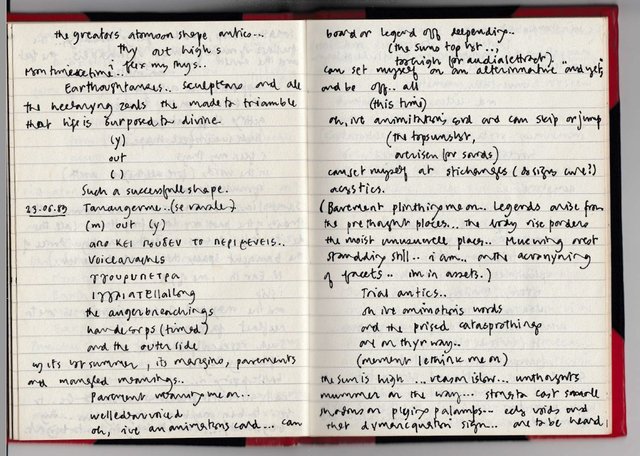 the greators atomoon shape antico...
thy out high s
flex my thys..
Earthoughtamers.. sculptors and all
the heelarying zeals the made to triamble
that life is surposed to divine.
(y)
out
( )
Such a successfull shape.
23.06.89 Tamangerme..(se varale?)
(m) out (y)
απο κει που δεν το περιμενεις..
voicearaches
γγουρυπετρα
the angerbrenchings
handcorps (timed)
and the outer side
of its by summer, its margins, pavements
and mangled meanings..
Parement on...
welledarvoiced
oh, ive an animations card... can
board or legend off deependix..
(the sumo top lot..,
too high (or audialettract).
can set myself on an alternative "and yet"
and be off... all
(this time)
oh, ive animitations card and can skip or jump
(the topsumlot,
arerisen for sands)
can set myself at stichanges (do signs cure?)
acastics.
(Barement plinthizmeon.. Legends arise from
the prethought places... the body rise
the moist unusunwell places.. Musewing erect
standding still.. i am... on the acronyning
of facets.. im in assets.)
Trial antics..
oh ive animations words
and the prised catasprothings
are on thyr way..
(moment lethink me on)
the sun is high ... reason islow... unthoughts
murmmer on the way... stones to cast sample
shadows on palamps... echy voids and
that sign... are to be heard